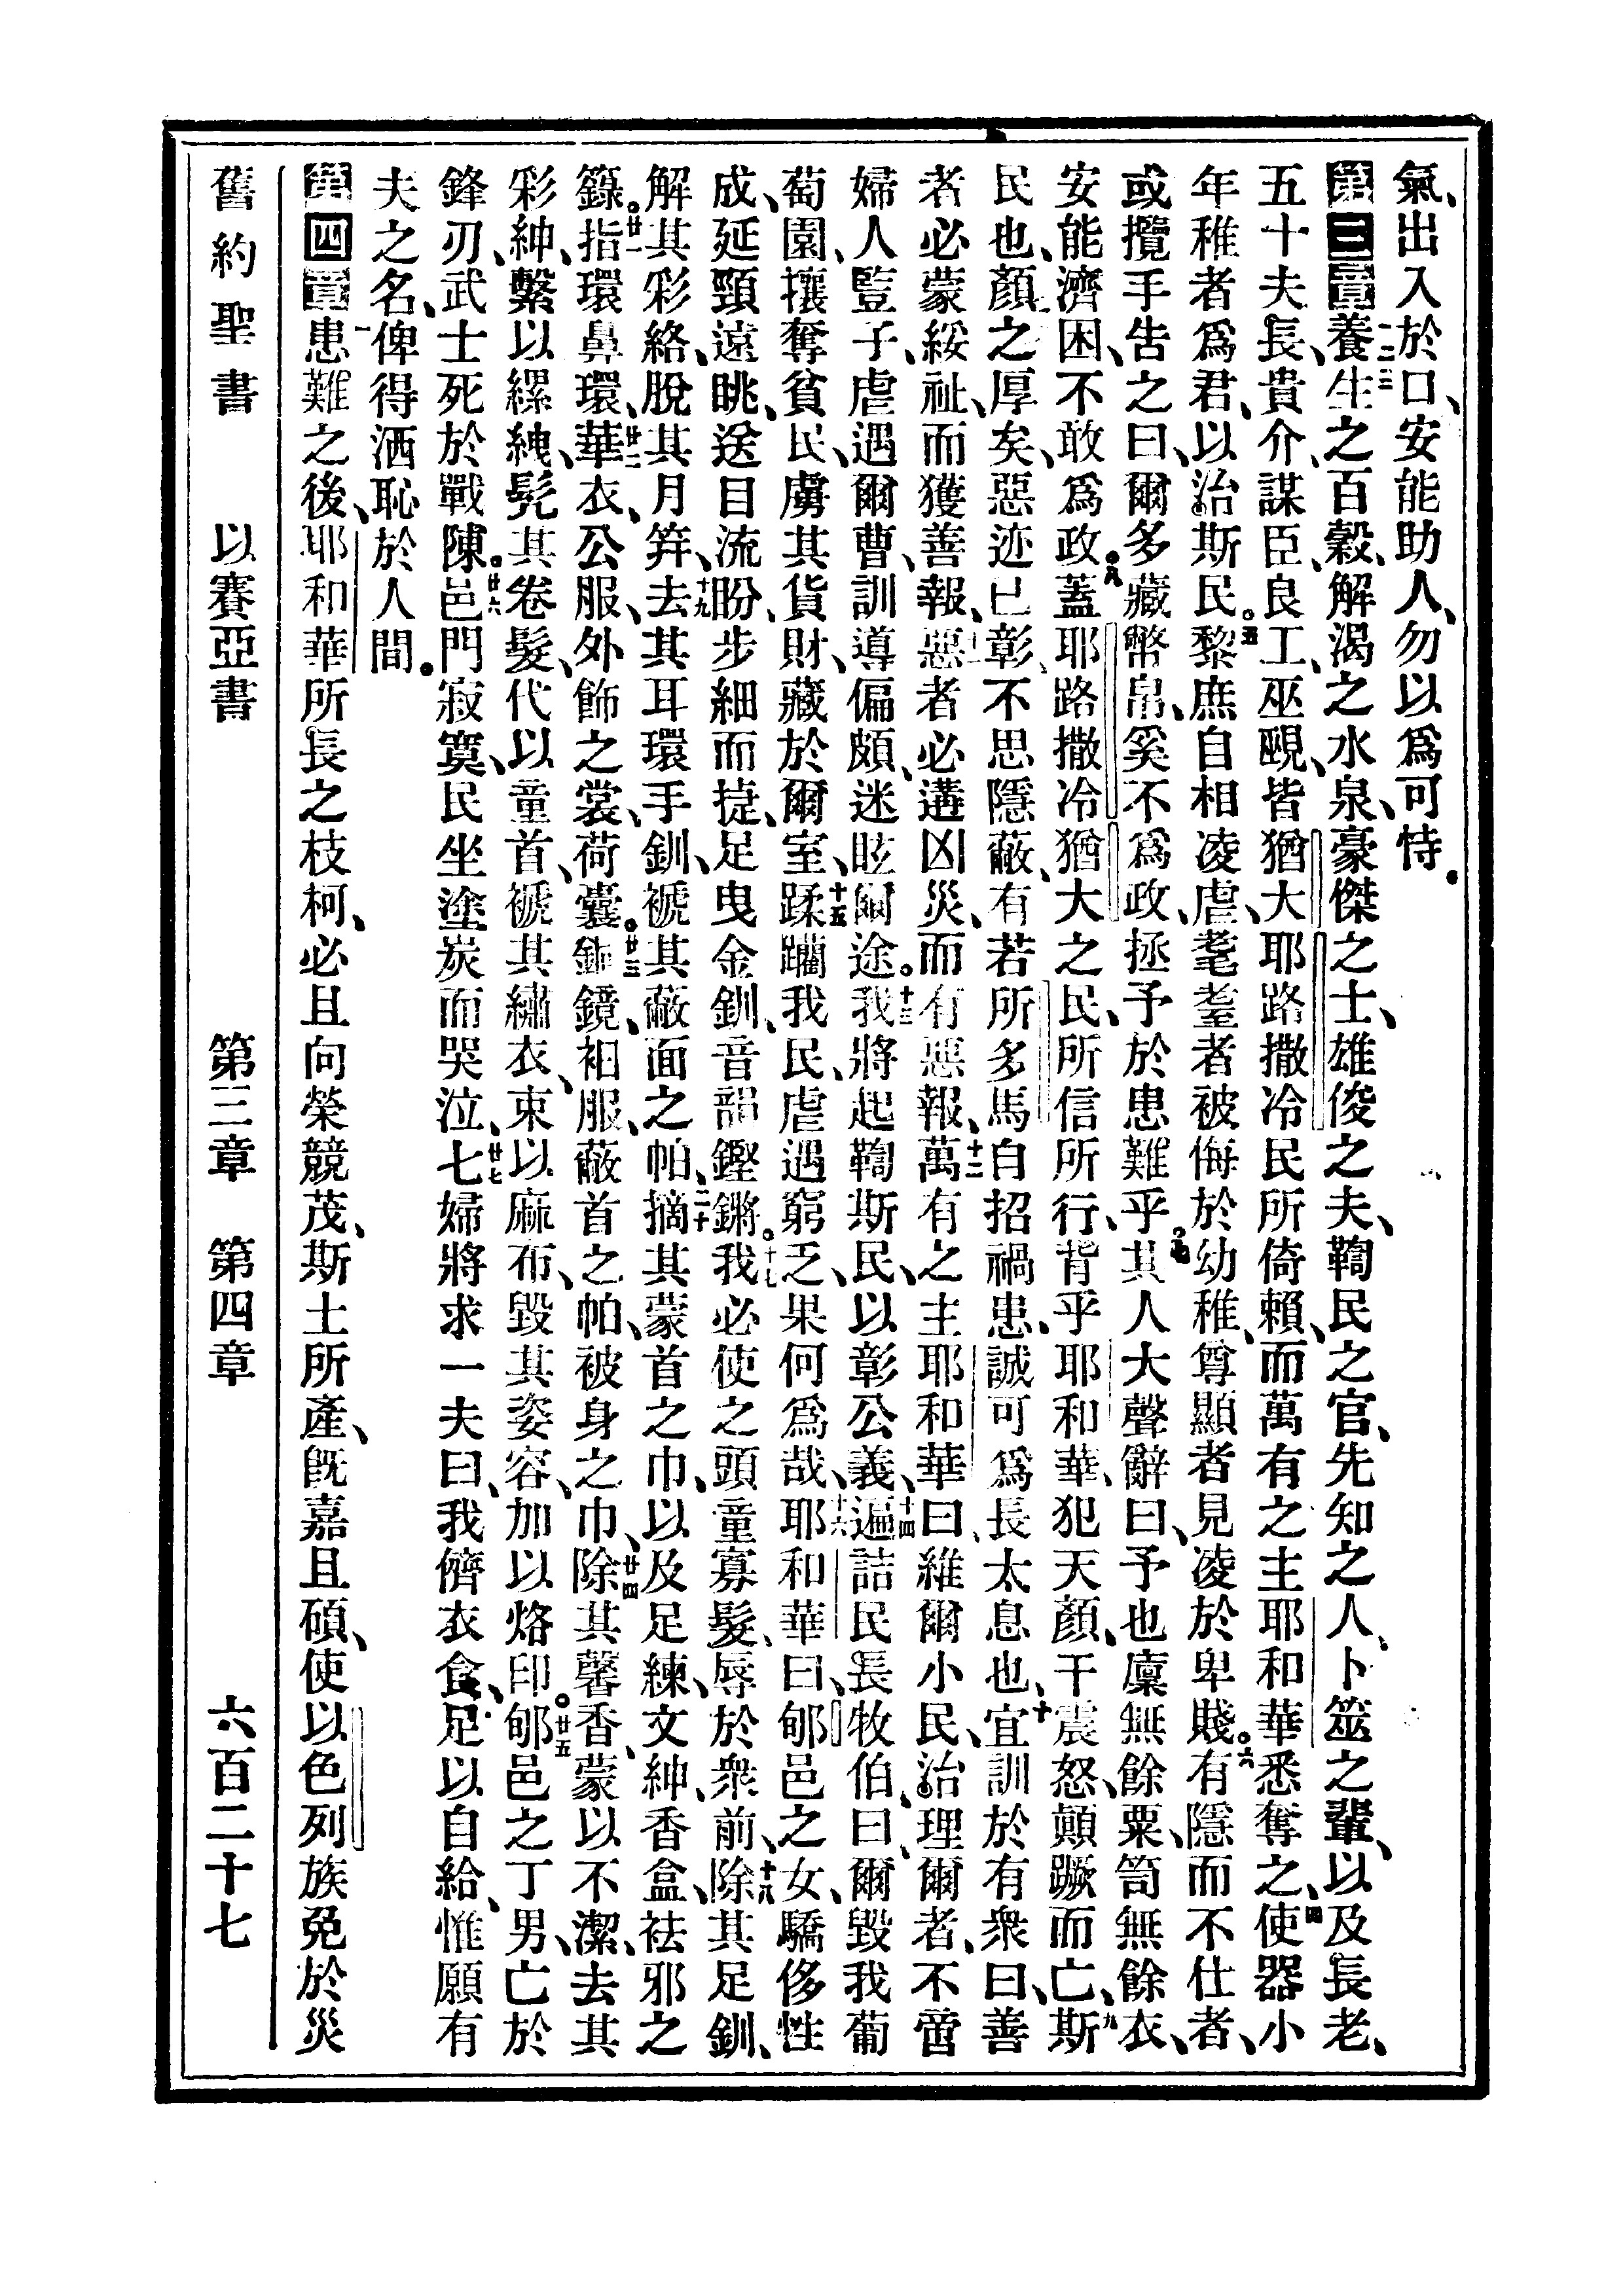 氣、出入於口、安能助人、勿以爲可恃。
第三章一二三養生之百穀、解渴之水泉、豪傑之士、雄俊之夫、鞫民之官、先知之人、卜筮之輩、以及長老、
五十夫長、貴介、謀臣、良工、巫覡、皆猶大耶路撒冷民所倚賴、而萬有之主耶和華悉奪之、四使器小
年稚者爲君、以治斯民。五黎庶自相凌虐、耄耋者被侮於幼稚、尊顯者見凌於卑賤。六有隱而不仕者、
或攬手告之曰、爾多藏幣帛、奚不爲政、拯予於患難乎。七其人大聲辭曰、予也廩無餘粟、笥無餘衣、
安能濟困、不敢爲政。八蓋耶路撒冷猶大之民、所信所行、背乎耶和華、犯天顏、干震怒、顛蹶而亡、九斯
民也、顏之厚矣、惡迹已彰、不思隱蔽、有若所多馬自招禍患、誠可爲長太息也、十宜訓於有衆曰、善
者必蒙綏祉、而獲善報、十一惡者必遘凶災、而有惡報、十二萬有之主耶和華曰、維爾小民、治理爾者、不啻
婦人豎子、虐遇爾曹、訓導偏頗、迷眩爾途。十三我將起鞫斯民、以彰公義、十四遍詰民長牧伯、曰、爾毀我葡
萄園、攘奪貧民、虜其貨財、藏於爾室、十五蹂躪我民、虐遇窮乏、果何爲哉、十六耶和華曰、郇邑之女、驕侈性
成、延頸遠眺、送目流盼、步細而捷、足曳金釧、音韻鏗鏘。十七我必使之頭童寡髮、辱於衆前、十八除其足釧、
解其彩絡、脫其月笄、十九去其耳環手釧、褫其蔽面之帕、二十摘其蒙首之巾、以及足練、文紳、香盒、袪邪之
籙。廿一指環鼻環、廿二華衣、公服、外飾之裳、荷囊。廿三鉔鏡、衵服、蔽首之帕、被身之巾、廿四除其馨香、蒙以不潔、去其
彩紳、繫以縲絏、髡其卷髮、代以童首、褫其繡衣、束以麻布、毀其姿容、加以烙印。廿五郇邑之丁男、亡於
鋒刃、武士死於戰陳。廿六邑門寂寞、民坐塗炭而哭泣、廿七七婦將求一夫曰、我儕衣食、足以自給、惟願有
夫之名、俾得洒恥於人間。
第四章一患難之後、耶和華所長之枝柯、必且向榮競茂、斯土所產、旣嘉且碩、使以色列族免於災
舊約聖書 以賽亞書 第三章 第四章 六百二十七